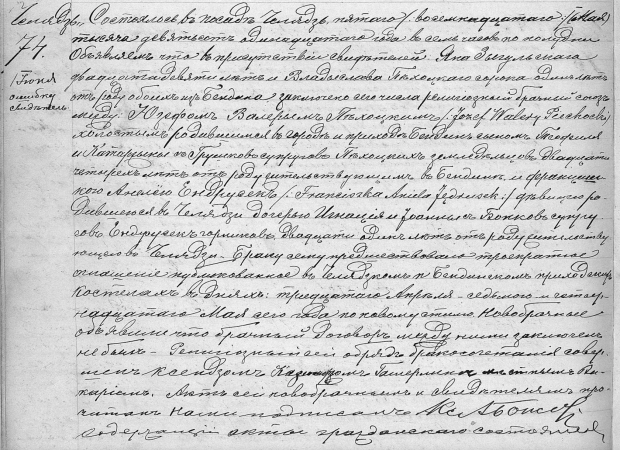 Челядзь. Состоялось въ посадѣ Челядзь, пятаго /: восемнадцатаго :/ Мая
74. тысяча девятьсотъ одинадцатаго года въ семь часовъ по полудни
Объявляемъ что въ присутствіи свидѣтелей Яна Зыгульскаго
двадцати девяти лѣтъ и Владыслава Плоцкаго сорока одинъ лѣтъ
1 Іюня
ошибку
свидѣтель
отъ роду обоихъ изъ Бендина заключено сего числа религіозный брачный союзъ
между Юзефомъ Валерымъ Плоцкимъ /: Józef Walery :/
холостымъ родившимся въ городѣ и приходѣ Бендинъ сыномъ Теофиля
и Катаржины изъ супруговъ Плоцкихъ земледѣльцовъ двадцати
четырехъ лѣтъ отъ роду жительствующимъ въ Бендинѣ и Францишкою
Анелею Ендрусекъ /: Franciszka Aniela Jedrusek :/ дѣвицею ро-
дившеюся въ Челядзи дочерью Игнація и Іоанны изъ супру-
говъ Ендрусекъ горниковъ двадцати одинъ лѣтъ отъ роду жительству-
ющею въ Челядзи. Браку сему предшествовало троекратное
оглашеніе публикованное въ Челядзкомъ и Бендинскомъ приходскихъ
костелахъ въ дняхъ: тридцатаго Апрѣля - седьмого и четыр-
надцатаго Мая сего года по новому стилю. Новобрачные
объявили что брачный договоръ между ними заключенъ
не былъ. Религіозный сей обрядъ бракосочетанія совер-
шенъ ксендзомъ мѣстнымъ Ви-
каріемъ. Актъ сей новобрачнымъ и свидѣтелямъ про-
читанъ Нами подписанъ
содержащій акты гражданскаго состоянія